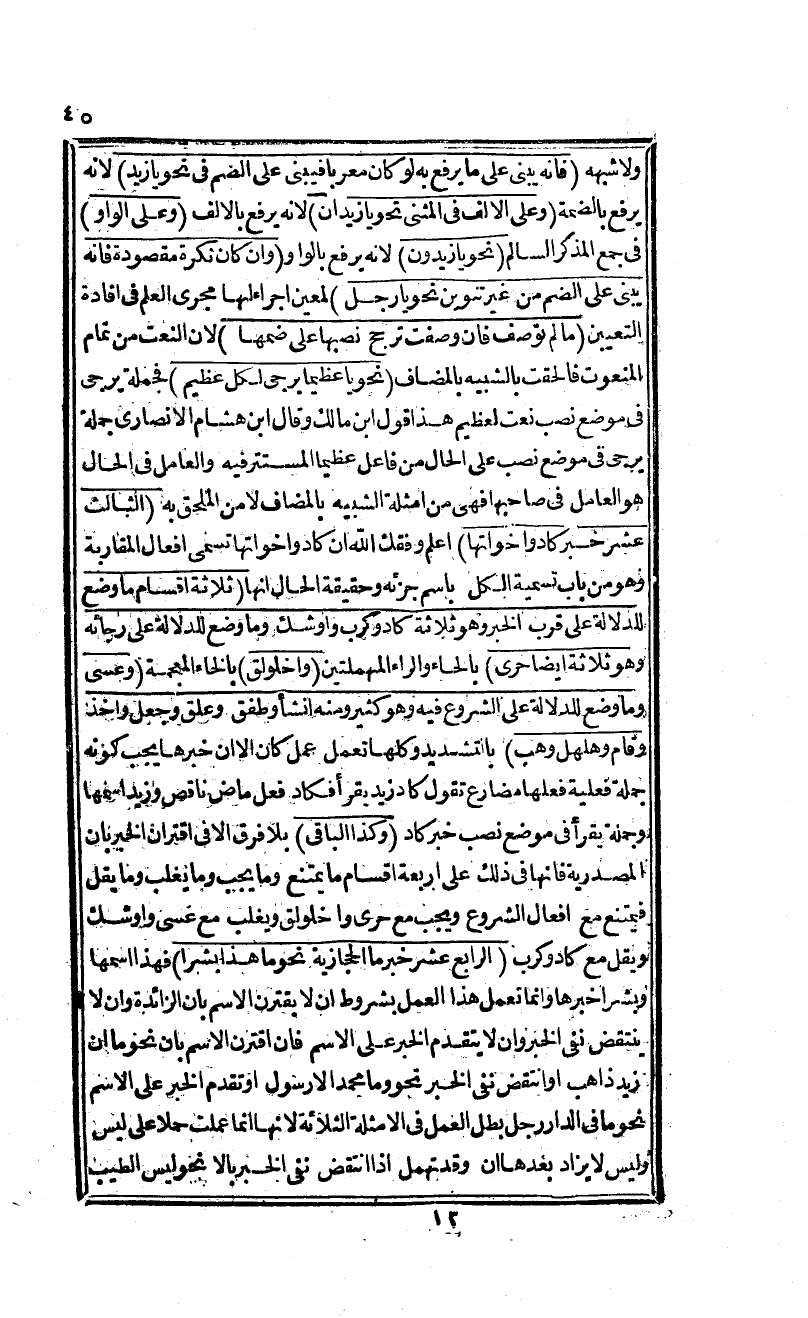 ٤٥
ولاشبهه (فانه يبنى على ما يرفع به لو كان معربا فيبنى على الضم فى نحو يازيد) لانه
يرفع بالضمة (وعلى الالف فى المثنى نحو يازيدان) لانه يرفع بالالف (وعلى الواو)
فى جمع المذكر السالم (نحو يازيدون) لانه يرفع بالواو (وان كان نكرة مقصودة فانه
يبنى على الضم من غير تنوين نحو يارجل) لمعين اجراء لها مجرى العلم فى افادة
التعيين (مالم توصف فان وصفت ترجح نصبها على ضمها) لان النعت من تمام
المنعوت فالحقت بالشبيه بالمضاف (نحو ياعظيما يرجى لكل عظيم) فجملة يرجى
فى موضع نصب نعت لعظيم هذا قول ابن مالك وقال ابن هشام الانصارى جملة
يرجى فى موضع نصب على الحال من فاعل عظيما المستتر فيه والعامل فى الحال
هو العامل فى صاحبها فهى من امثلة الشبيه بالمضاف لا من الملحق به (الثالث
عشر خبر كاد واخواتها) اعلم وفقك الله ان كاد واخواتها تسمى افعال المقاربة
وهو من باب تسمية الكل باسم جزئه وحقيقة الحال انها (ثلاثة اقسام ماوضع
للدلالة على قرب الخبر وهو ثلاثة كاد وكرب واوشك وماوضع للدلالة على رجائه
وهو ثلاثة ايضا حرى) بالحاء والراء المهملتين (واخلولق) بالخاء المعجمة (وعسى
وماوضع للدلالة على الشروع فيه وهو كثير ومنه انشأ وطفق وعلق وجعل واخذ
وقام وهلهل وهب) بالتشديد وكلها تعمل عمل كان الا ان خبرها يجب كونه
جملة فعلية فعلها مضارع تقول كاد زيد يقرأ فكاد فعل ماض ناقص وزيد اسمها
وجملة يقرأ فى موضع نصب خبر كاد (وكذا الباقى) بلا فرق الا فى اقتران الخبر بان
المصدرية فانها فى ذلك على اربعة اقسام ما يمتنع وما يجب وما يغلب وما يقل
فيمتنع مع افعال الشروع ويجب مع حرى واخلولق ويغلب مع عسى واوشك
ويقل مع كاد وكرب (الرابع عشر خبر ما الحجازية نحو ما هذا بشرا) فهذا اسمها
وبشرا خبرها وانما تعمل هذا العمل بشروط ان لا يقترن الاسم بان الزائدة وان لا
ينتقض نفى الخبر وان لا يتقدم الخبر على الاسم فان اقترن الاسم بان نحو ما ان
زيد ذاهب او انتقض نفى الخبر نحو وما محمد الا رسول او تقدم الخبر على الاسم
نحو ما فى الدار رجل بطل العمل فى الامثلة الثلاثة لانها انما عملت حملا على ليس
وليس لا يزاد بعدها ان وقد تهمل اذا انتقض نفى الخبر بالا نحو ليس الطيب
١٢